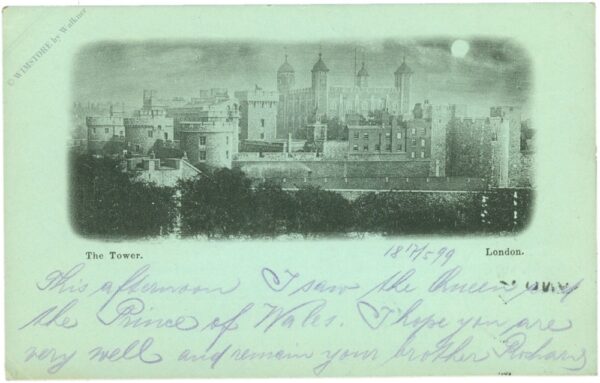 © WIMSTORE by Walkner
The Tower.
London.
18 17/5 99
This afternoon I saw the Queen and
the Prince of Wales. I hope you are
very well and remain your brother Richard